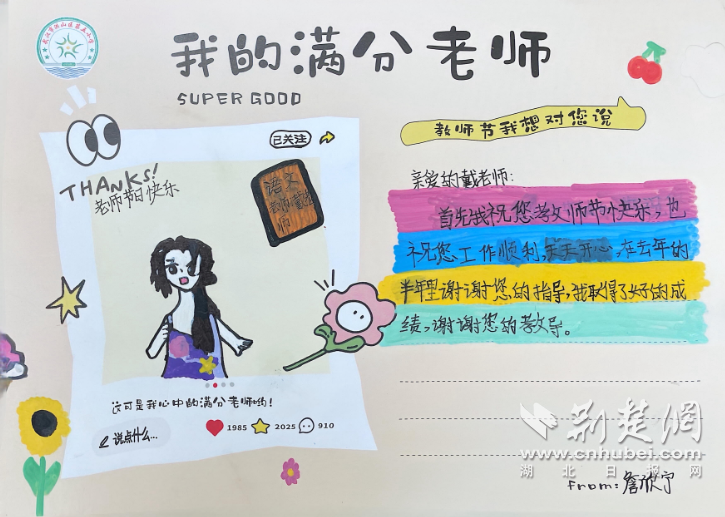 我的满分老师
SUPER GOOD
教师节我想对您说
已关注
THANKS!
老师节日快乐
语文
老师戴老
师
亲爱的戴老师:
首先我祝您教师节快乐,也
祝您工作顺利,天天开心,在去年的
半年里谢谢您的指导,我取得了好的成
绩,谢谢您的教导。
这可是我心中的满分老师哟!
1985 2025 910
说点什么...
荆楚网
www.cnhubei.com
湖北日报网
From:詹欣宁